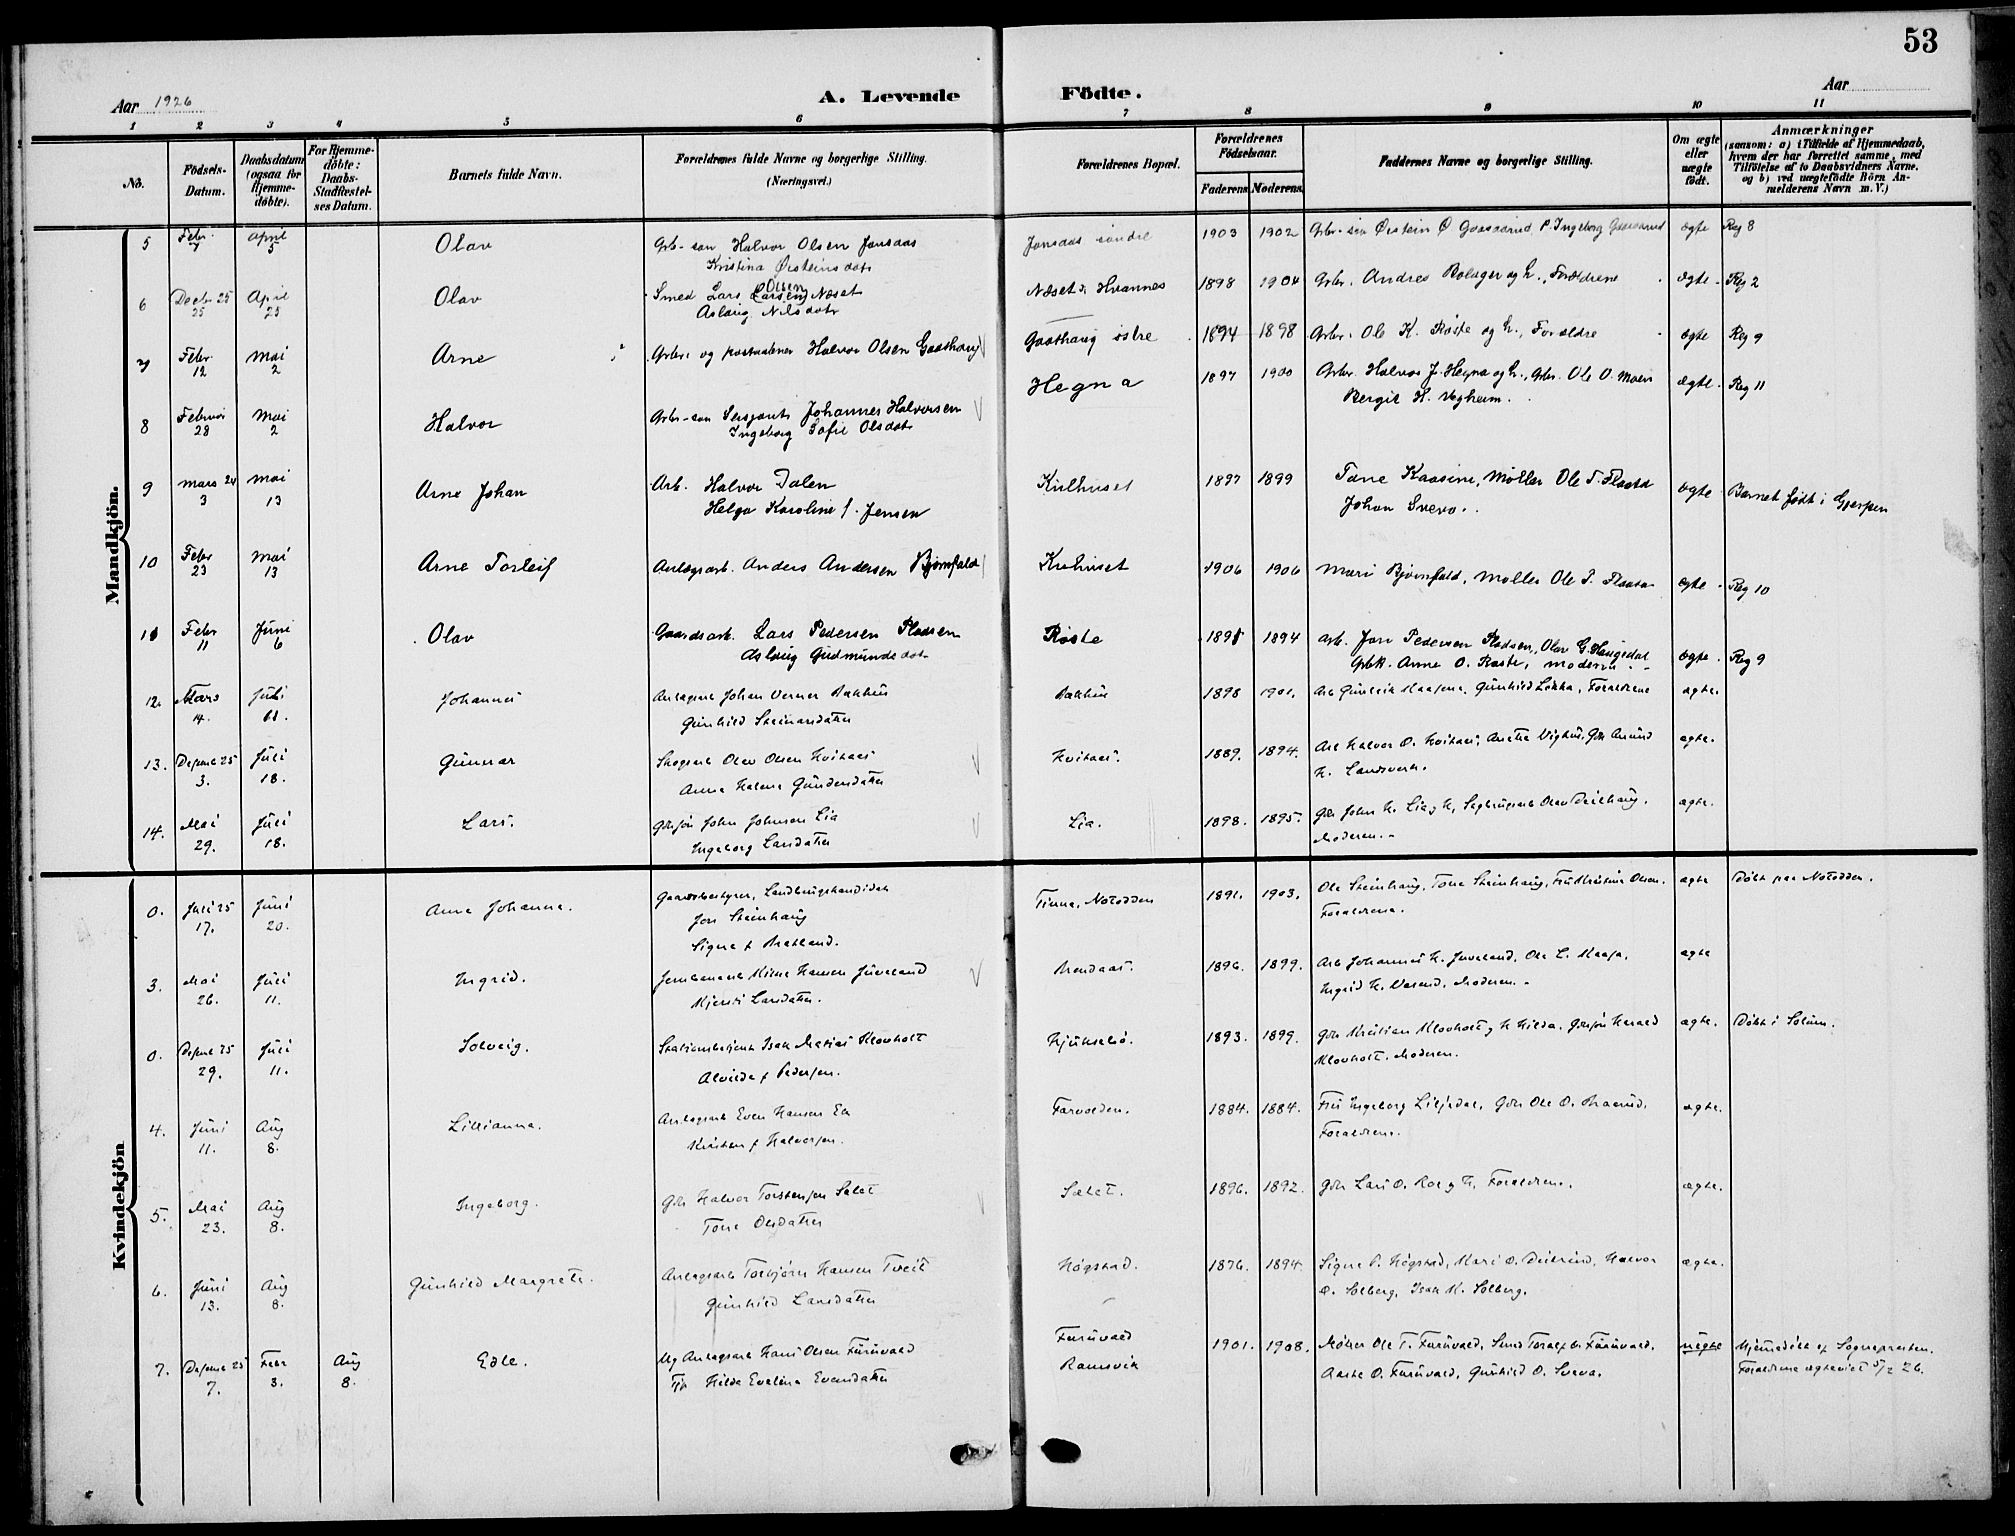 53
Aar 1926
A. Levende Födte.
Aar
1 2 3 4 5 6 7 8 9 10 11
No.
Födsels-Datum.
Daabsdatum (ogsaa for Hjemme-döbte).
For Hjemme-döbte: Daabs-Stadfæstel-ses Datum.
Barnets fulde Navn.
Forældrenes fulde Navne og borgerlige Stilling. (Næringsvei.)
Forældrenes Bopæl.
Forældrenes Födselsaar.
Faderens Moderens
Faddernes Navne og borgerlige Stilling.
Om ægte eller uægte födt.
Anmærkninger (saasom: a) i Tilfælde af Hjemmedaab, hvem der har forrettet samme, med Tilföielse af to Daabsvidners Navne. og b) ved uægtefödte Börn An-melderens Navn m. V.)
Mandkjön.
5 Febr. 7 April 5 Olav Grb-søn Halvor Olsen Jonsaas Jonsaas søndre 1903 1902 ægte Reg 8
Kristina Østeinsdatr
6 Decbr 25 25 April 25 Olav Smed Lars Olsen (Larsen) Næset 1898 1904 Grbr. Andres Bolager og h., Forældrene ægte Reg 2
Aslaug Nilsdatr
7 Febr 12 Mai 2 Arne Grbr. og Halvor Olsen Gaathaug Gaathaug østre 1894 1898 Grbr. Ole K. Røste og h., Forældre ægte Reg 9
8 Februar 28 Mai 2 Halvor Grbr-søn Sersjant Johannes Halvorsen Hegna 1897 1900 Grbr. Halvor J. Hegna og h., Grbr. Ole O. Moen ægte Reg 11
Ingeborg Sofie Olsdatr Bergit H. Vegheim.
9 Mars 24 3 Mai 13 Arne Johan Arb. Halvor Dalen 1897 1899 Tone Kaasine, Møller Ole T. Flaata ægte Barnet født i Gjerpen
Helga Karoline f. Jensen Johan Sneva.
10 Febr 23 Mai 13 Arne Torleif Anlægsarb. Anders Andersen Bjørnfald 1906 1906 Mari Bjørnfald, Møller Ole T. Flaata ægte Reg 10
11 Febr 11 Juni 6 Olav Gaardsarb. Lars Pedersen Pladsen Røste 1894 Arb. Jon Pedersen Pladsen, Olav G. Haugedal ægte Reg 9
Aslaug Gudmundsdatr Grbk. Anne O. Røste, Moderen
12. Mars 14. Juli Johannes Anlægsarb Johan Verner Bakhus Bakhus 1898 1901. Gunhild Lokka, Forældrene ægte.
Gunhild Steinarsdatter
13. Desemb 25 3. Juli 18. Gunnar Skogsarb Olav Olsen Kvitaas Kvitaas. 1889. 1894. Arb Halvor O. Kvitaas, ægte.
Anna Halene Gundersdatter H. Landsverk.
14. Mai 29. Juli 18. Lars. Gbrsøn John Johnsen Lia Lia. 1898. 1895. Gbr John H. Lia og h, ægte.
Ingeborg Larsdatter Moderen.
Kvindekjön
0. Juli 25 17. Juni 20. Anne Johanne. Gaardsbestyrer, Landbrugskandidat Tinne, Notodden 1891. 1903. Ole Steinhaug, Tone Steinhaug, Fru Kristine Olsen. ægte Døbt paa Notodden.
Jon Steinhaug Forældrene.
Signe f Bratland.
3. Mai 26. Juli 11. Ingrid. Jernbanearb Hansen Juveland 1896. 1899. Arb Johannes H. Juveland, Ole L. Kaasa, ægte
Kjersti Larsdatter. Moderen.
0. Desemb 25 29. Juli 11. Solveig. Stationsbetjent Isak Matias Klovholt Hjuksebø. 1893. 1899. Gbr Kristian Klovholt og h Hilda, Gbrsøn Harald ægte. Døbt i Solum.
Alvilde f Pedersen. Klovholt. Moderen.
4. Juni 11. Aug 8. Lillianna. Anlægsarb Even Hansen Ek Farvolden. 1884. 1884. Fru Ingeborg Liljedal, Gbr Ole O. Braarud, ægte.
Kristine f Halvorsen. Forældrene.
5. Mai 23. Aug 8. Ingeborg. Gbr Halvor Torstensen Sælet Sælet. 1896. 1892. Gbr Lars O. Roe og h, Forældrene. ægte.
Tone Olsdatter
6. Juni 13. Aug 8. Gunhild Margrete. Anlægsarb Torbjørn Hansen Tveit Høgstad. 1876. 1894. Signe P. Høgstad, Halvor ægte.
Gunhild Larsdatter O. Solberg, Isak K. Solberg.
7. Desemb 25 7. Febr 3. Aug 8. Edle. Ug Anlægsarb Hans Olsen Furuvald Furuvald 1901. 1908. Møller Ole T. Furuvald, Smed Toralf O. Furuvald, uægte Hjemmedøbt af Sognepresten.
Pi Hilda Eveline Evensdatter Ramsvik Aaste O. Furuvald, Gunhild O. Sneva. Forældrene ægteviet 5/2 26.